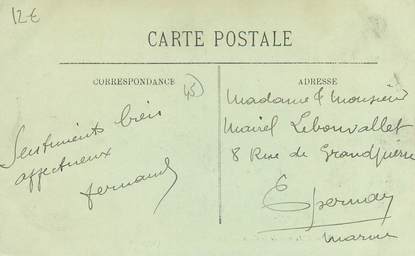 12€
CARTE POSTALE
CORRESPONDANCE
45
ADRESSE
Sentiments bien
affectueux
Fernand
Madame & Monsieur
Marcel Lebonvallet
8 Rue de Grandpierre
Epernay
Marne